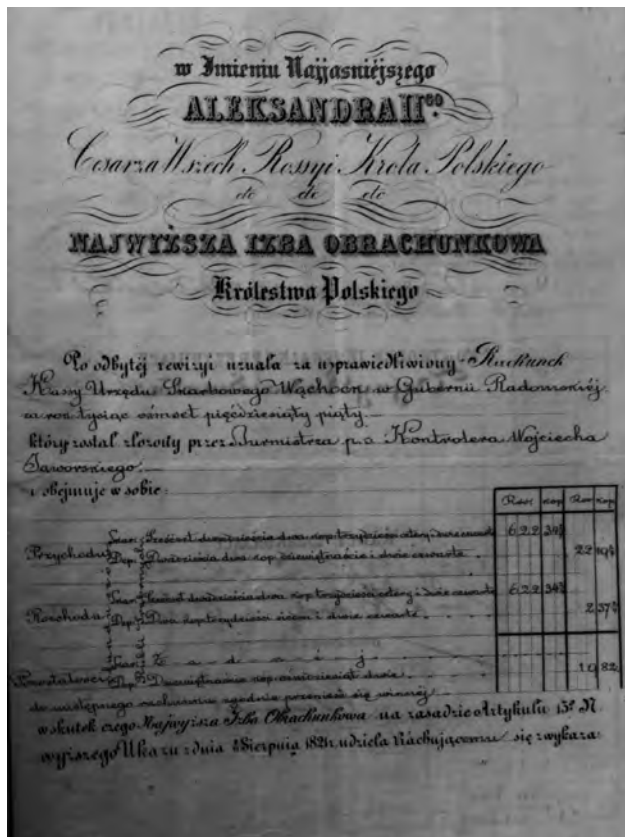 w Imieniu Najjaśniéjszego
ALEKSANDRA IIgo.
Cesarza Wszech Rossyi Króla Polskiego
etc etc etc
NAJWYŻSZA IZBA OBRACHUNKOWA
Królestwa Polskiego
Po odbytéj rewizyi uznała za usprawiedliwiony Rachunek
Kassy Urzędu Skarbowego Wąchock w Gubernii Radomskiéj
za rok tysiąc ośmset pięćdziesiąty piąty.
który został złożony przez Burmistrza p.o Kontrolera Wojciecha
Jaworskiego.
i obejmuje w sobie:
Rsr. kop Rsr kop
Przychodu Sześćset dwadzieścia dwa kop. trzydzieści cztery i dwie czwarte 622 34
Dep. Dwadzieścia dwa kop. dziewiętnaście i dwie czwarte 22 19
Rozchodu Sześćset dwadzieścia dwa kop. trzydzieści cztery i dwie czwarte 622 34
Dep. Dwa kop. trzydzieści siedm i dwie czwarte 2 37
Pozostałości Ż a d n éj
Dep. Dziewiętnaście kop. ośmdziesiąt dwie 19 82
do następnego rachunku zgodnie przenieść się winnéj
wskutek czego Najwyższa Izba Obrachunkowa na zasadzie Artykułu 13º N.
wyższego Ukazu z dnia Sierpnia 1821 r. udziela Rachującemu się z wykaza: